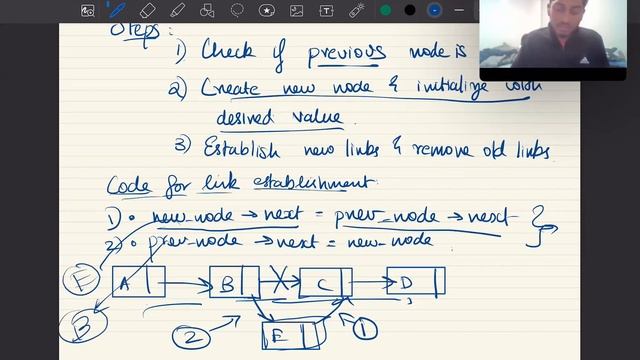 Steps:
1) Check if previous node is
2) Create new node & initialize with
desired value.
3) Establish new links & remove old links
Code for link establishment
1) • new_node → next = prev_node → next
2) • prev_node → next = new_node
E A B C D
B 2 E 1